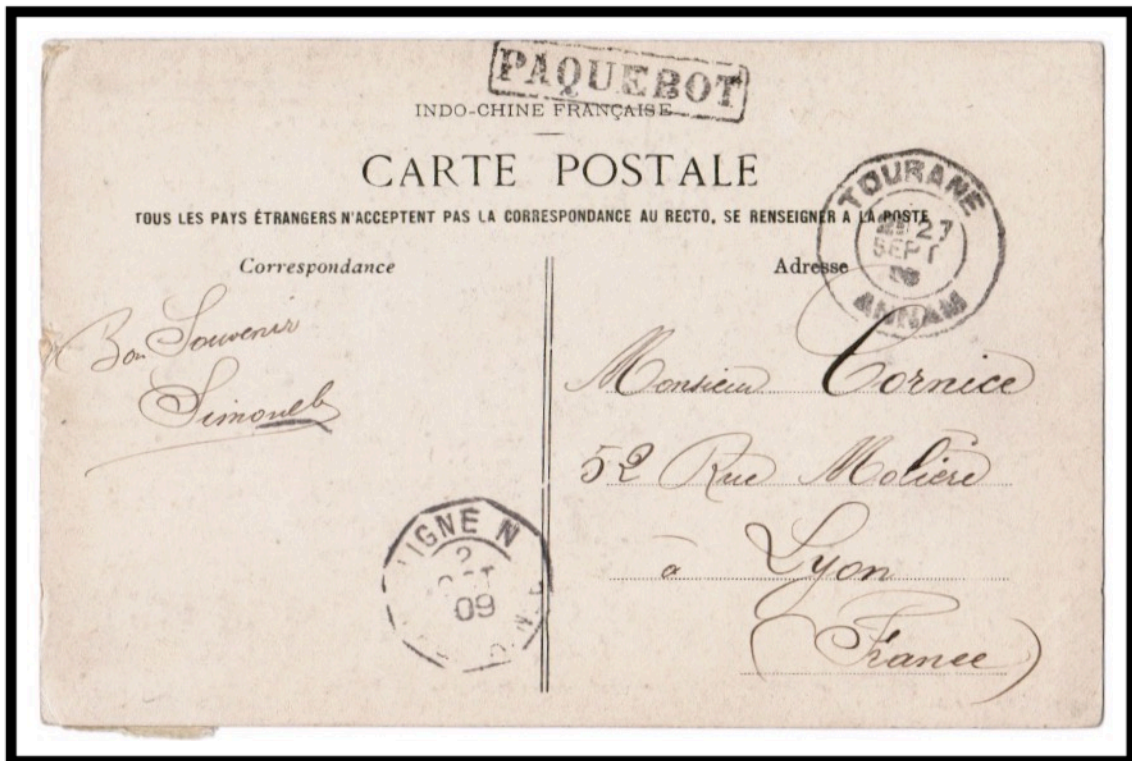 PAQUEBOT
INDO-CHINE FRANÇAISE
CARTE POSTALE
TOUS LES PAYS ÉTRANGERS N'ACCEPTENT PAS LA CORRESPONDANCE AU RECTO, SE RENSEIGNER A LA POSTE
TOURANE
27
SEPT
ANNAM
Correspondance
Bon Souvenir
Adresse
Monsieur Cornice
52 Rue Molière
à Lyon
(France)
LIGNE N
2
OCT
09